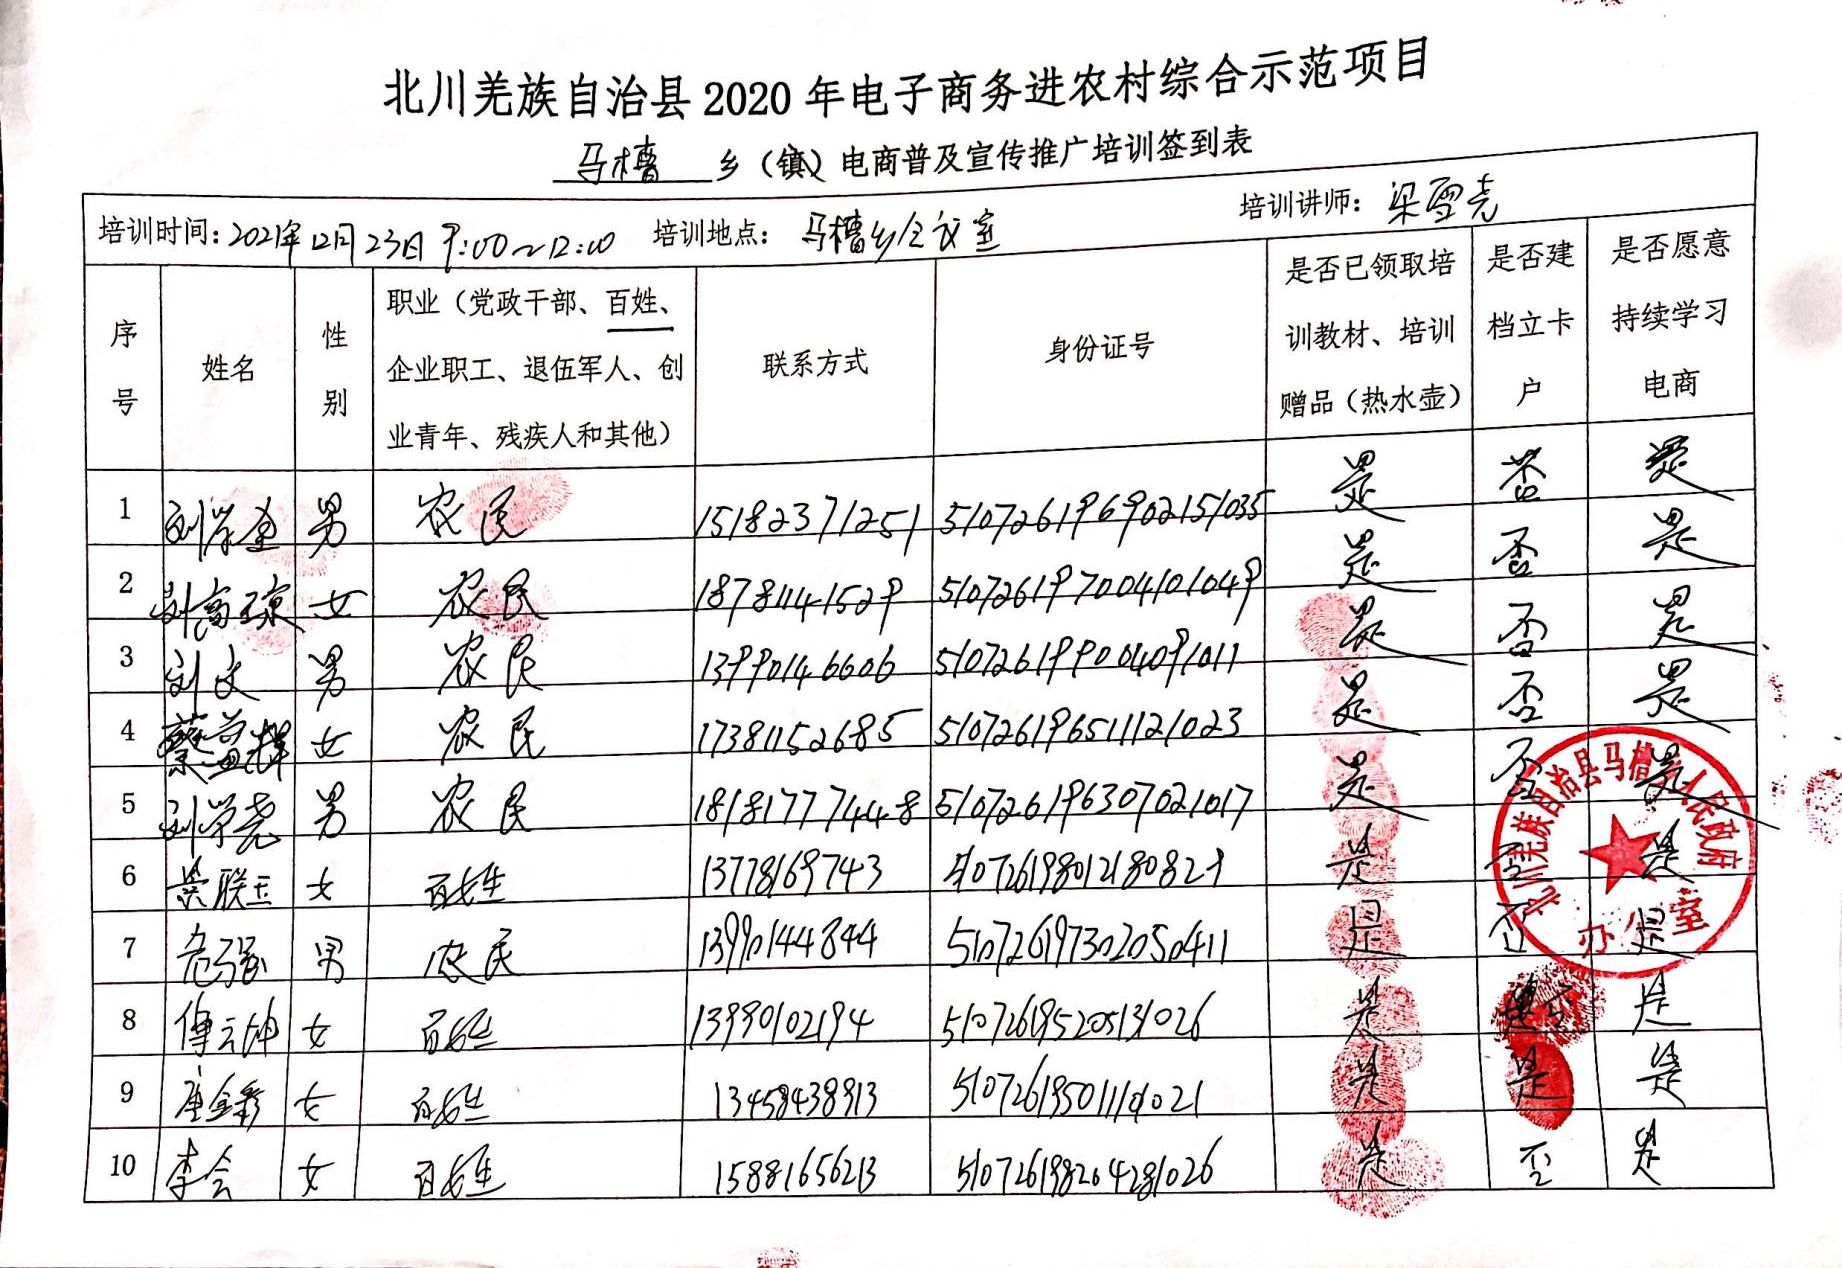 北川羌族自治县2020年电子商务进农村综合示范项目
马槽 乡（镇）电商普及宣传推广培训签到表
培训时间：2021年12月23日 9:00~12:00 培训地点：马槽乡会议室 培训讲师：梁雪尧
序号 姓名 性别 职业（党政干部、百姓、企业职工、退伍军人、创业青年、残疾人和其他） 联系方式 身份证号 是否已领取培训教材、培训赠品（热水壶） 是否建档立卡户 是否愿意持续学习电商
1 男 农民 15182371251 510726196902151035 是 否 是
2 刘高琼 女 农民 18781141529 510726197004101049 是 否 是
3 刘文 男 农民 13990146606 510726199004091011 是 否 是
4 蔡益辉 女 农民 17381152685 510726196511121023 是 否 是
5 刘学尧 男 农民 18181777448 510726196307021017 是 否 是
6 女 百姓 13778169743 510726198012180829 是 否 是
7 男 农民 13990144844 510726197302050411 是 否 是
8 傅云坤 女 百姓 13990102194 510726195205131026 是 是
9 唐金秀 女 百姓 13458438913 是 是 是
10 李会 女 百姓 15881656213 510726198204281026 是 否 是
北川羌族自治县马槽乡人民政府
办公室